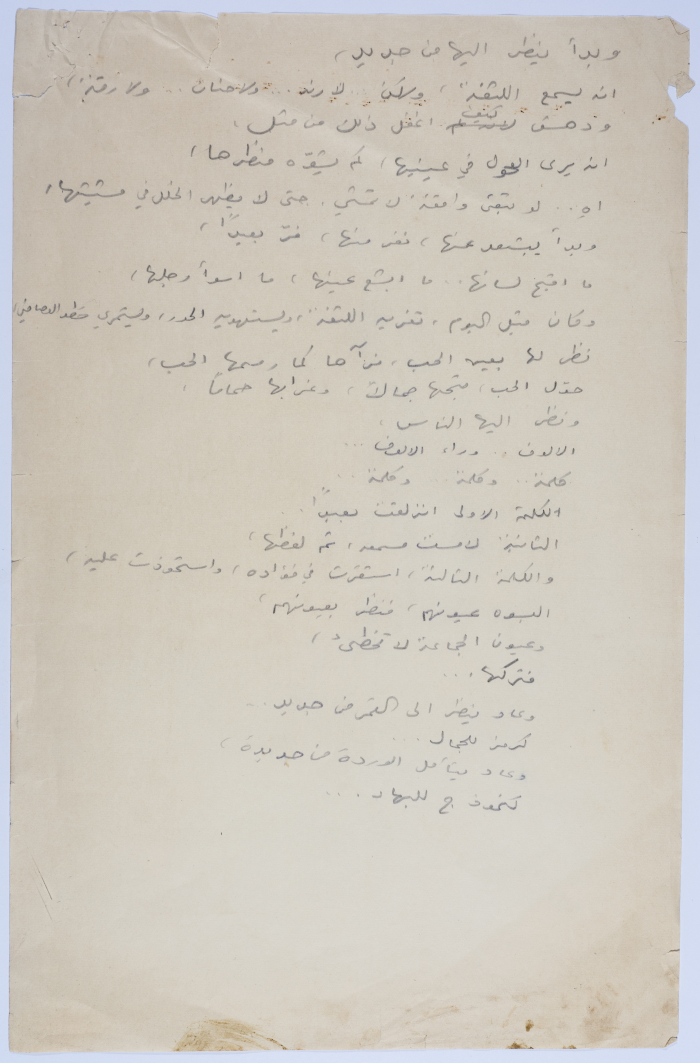 وبدأ ينظر اليها من جديد،
انه يسمع اللثغة، ولكن .. لا رند .. ولا حنان .. ولا رقة،
ودهش كيف اغفل ذلك من قبل،
انه يرى الحول في عينيها، كم يشوّه منظرها،
اهٍ .. لو تبقى واقفة لا تمشي، حتى لا يظهر الخلل في مشيتها،
وبدأ يبتعد عنها، نفر منها، فرّ بعيداً،
ما اقبح لسانها .. ما ابشع عينها، ما اسوأ رجلها،
وكان قبل اليوم، تغريه اللثغة، ويستهويه الحور، ويستمري خطو
نظر لها بعين الحب، فرآها كما رسمها الحب،
حوّل الحب، قبحها جمالاً، وغرابها حماماً،
ونظر اليها الناس،
الالوف .. وراء الالوف ...
كلمة .. وكلمة .. وكلمة ..
الكلمة الاولى انزلقت بعيداً ..
الثانية لامست مسمعه، ثم لفظها،
والكلمة الثالثة، استقرت في فؤاده، واستحوذت عليه،
البسوه عيونهم، فنظر بعيونهم،
وعيون الجماعة لا تخطىء،
فتركها، ...
وعاد ينظر الى القمر من جديد ...
كرمز للجمال ...
وعاد يتأمل الوردة من جديدة،
كنموذج للبهاء ....